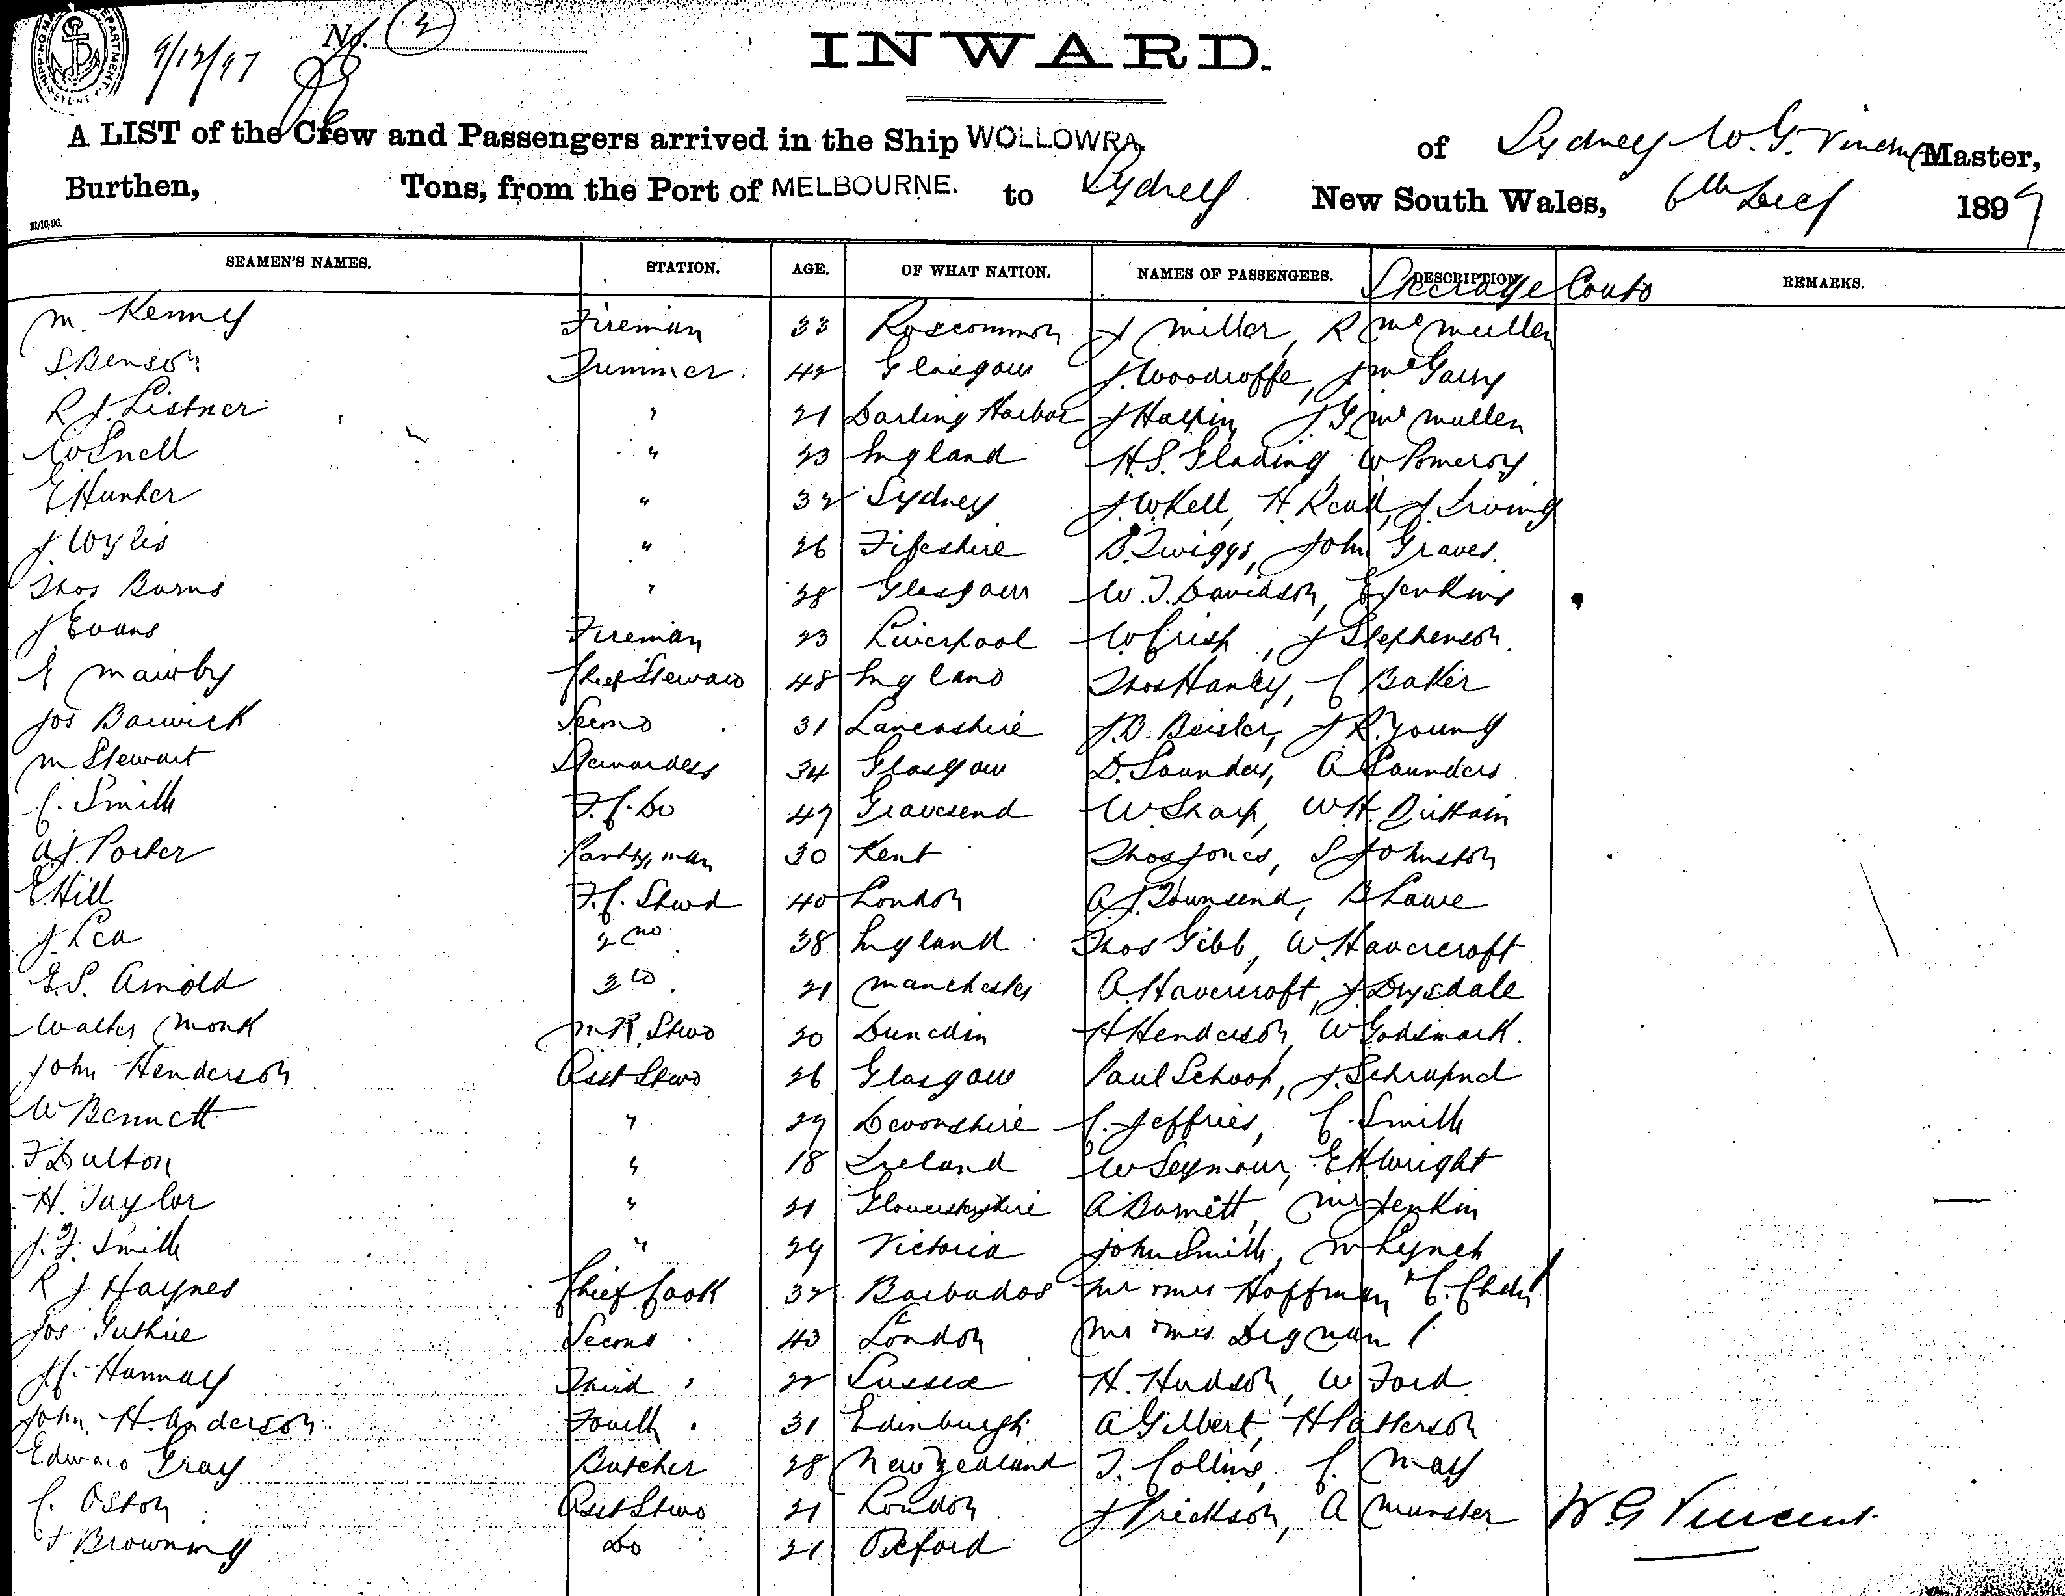 9/12/97 No. 2
INWARD.
A LIST of the Crew and Passengers arrived in the Ship WOLLOWRA, of Sydney W. G. Vincent Master,
Burthen, Tons, from the Port of MELBOURNE. to Sydney New South Wales, 6th Decr 1897
SEAMEN'S NAMES. STATION. AGE. OF WHAT NATION. NAMES OF PASSENGERS. DESCRIPTION REMARKS.
Steerage Contd
M. Kenney Fireman 33 Roscommon J Miller, R McMullen
S. Benson Trimmer 42 Glasgow J. Woodroffe, J McGarry
R J. Listner " 21 Darling Harbor J Halpin J. G McMullen
W Snell " 23 England H. S. Glading W Pomeroy
E Hunter " 32 Sydney J. W Kell, H. Read, J. Irving
J Wylis " 26 Fifeshire B. Twiggs, John Graves.
Thos Burns " 28 Glasgow W. T. Davidson, E Jenkins
J Evans Fireman 23 Liverpool W Crisp, J Stephenson.
E Mawby Chief Steward 48 England Thos Hanley, C Baker
Jos Barwick Second 31 Lancashire J. B. Beisler, J. R. Young
M Stewart Stewardess 34 Glasgow D. Saunders, A Saunders
C. Smith F. C. Do 47 Gravesend W Sharp, W. H. Brittain
A. J. Porter Pantryman 30 Kent Thos Jones, S Johnston
E Hill F. C. Stwd 40 London A. J. Townsend, B Lawe
J. Lea 2nd 38 England Thos Gibb, W. Havercroft
E. S. Arnold 3rd 21 Manchester A. Havercroft, J. Drysdale
Walter Monk M R. Stwd 20 Dunedin H Henderson, W Godsmark.
John Henderson Asst Stwd 26 Glasgow Paul Schoof, J. Schrapnel
W Bennett " 27 Devonshire C. Jeffries, C. Smith
F Dulton " 18 Ireland W Seymour, E H Wright
H. Taylor " 21 Gloucestershire A Barnett, Mrs Jenkin
J. F. Smith " 29 Victoria John Smith, M Lynch
R J Haynes Chief Cook 32 Barbados Mr & Mrs Hoffman & C.
Jos Guthrie Second 43 London Mr & Mrs Dignan
J C. Hannay Third " 22 Sussex H. Hudson, W Ford
John H. Anderson Fourth " 31 Edinburgh A Gilbert, H Patterson
Edward Gray Butcher 28 New Zealand T. Collins, C. May
C. Oston Asst Stwd 21 London J Erickson, A Munster W G Vincent
F Browning Do 21 Oxford